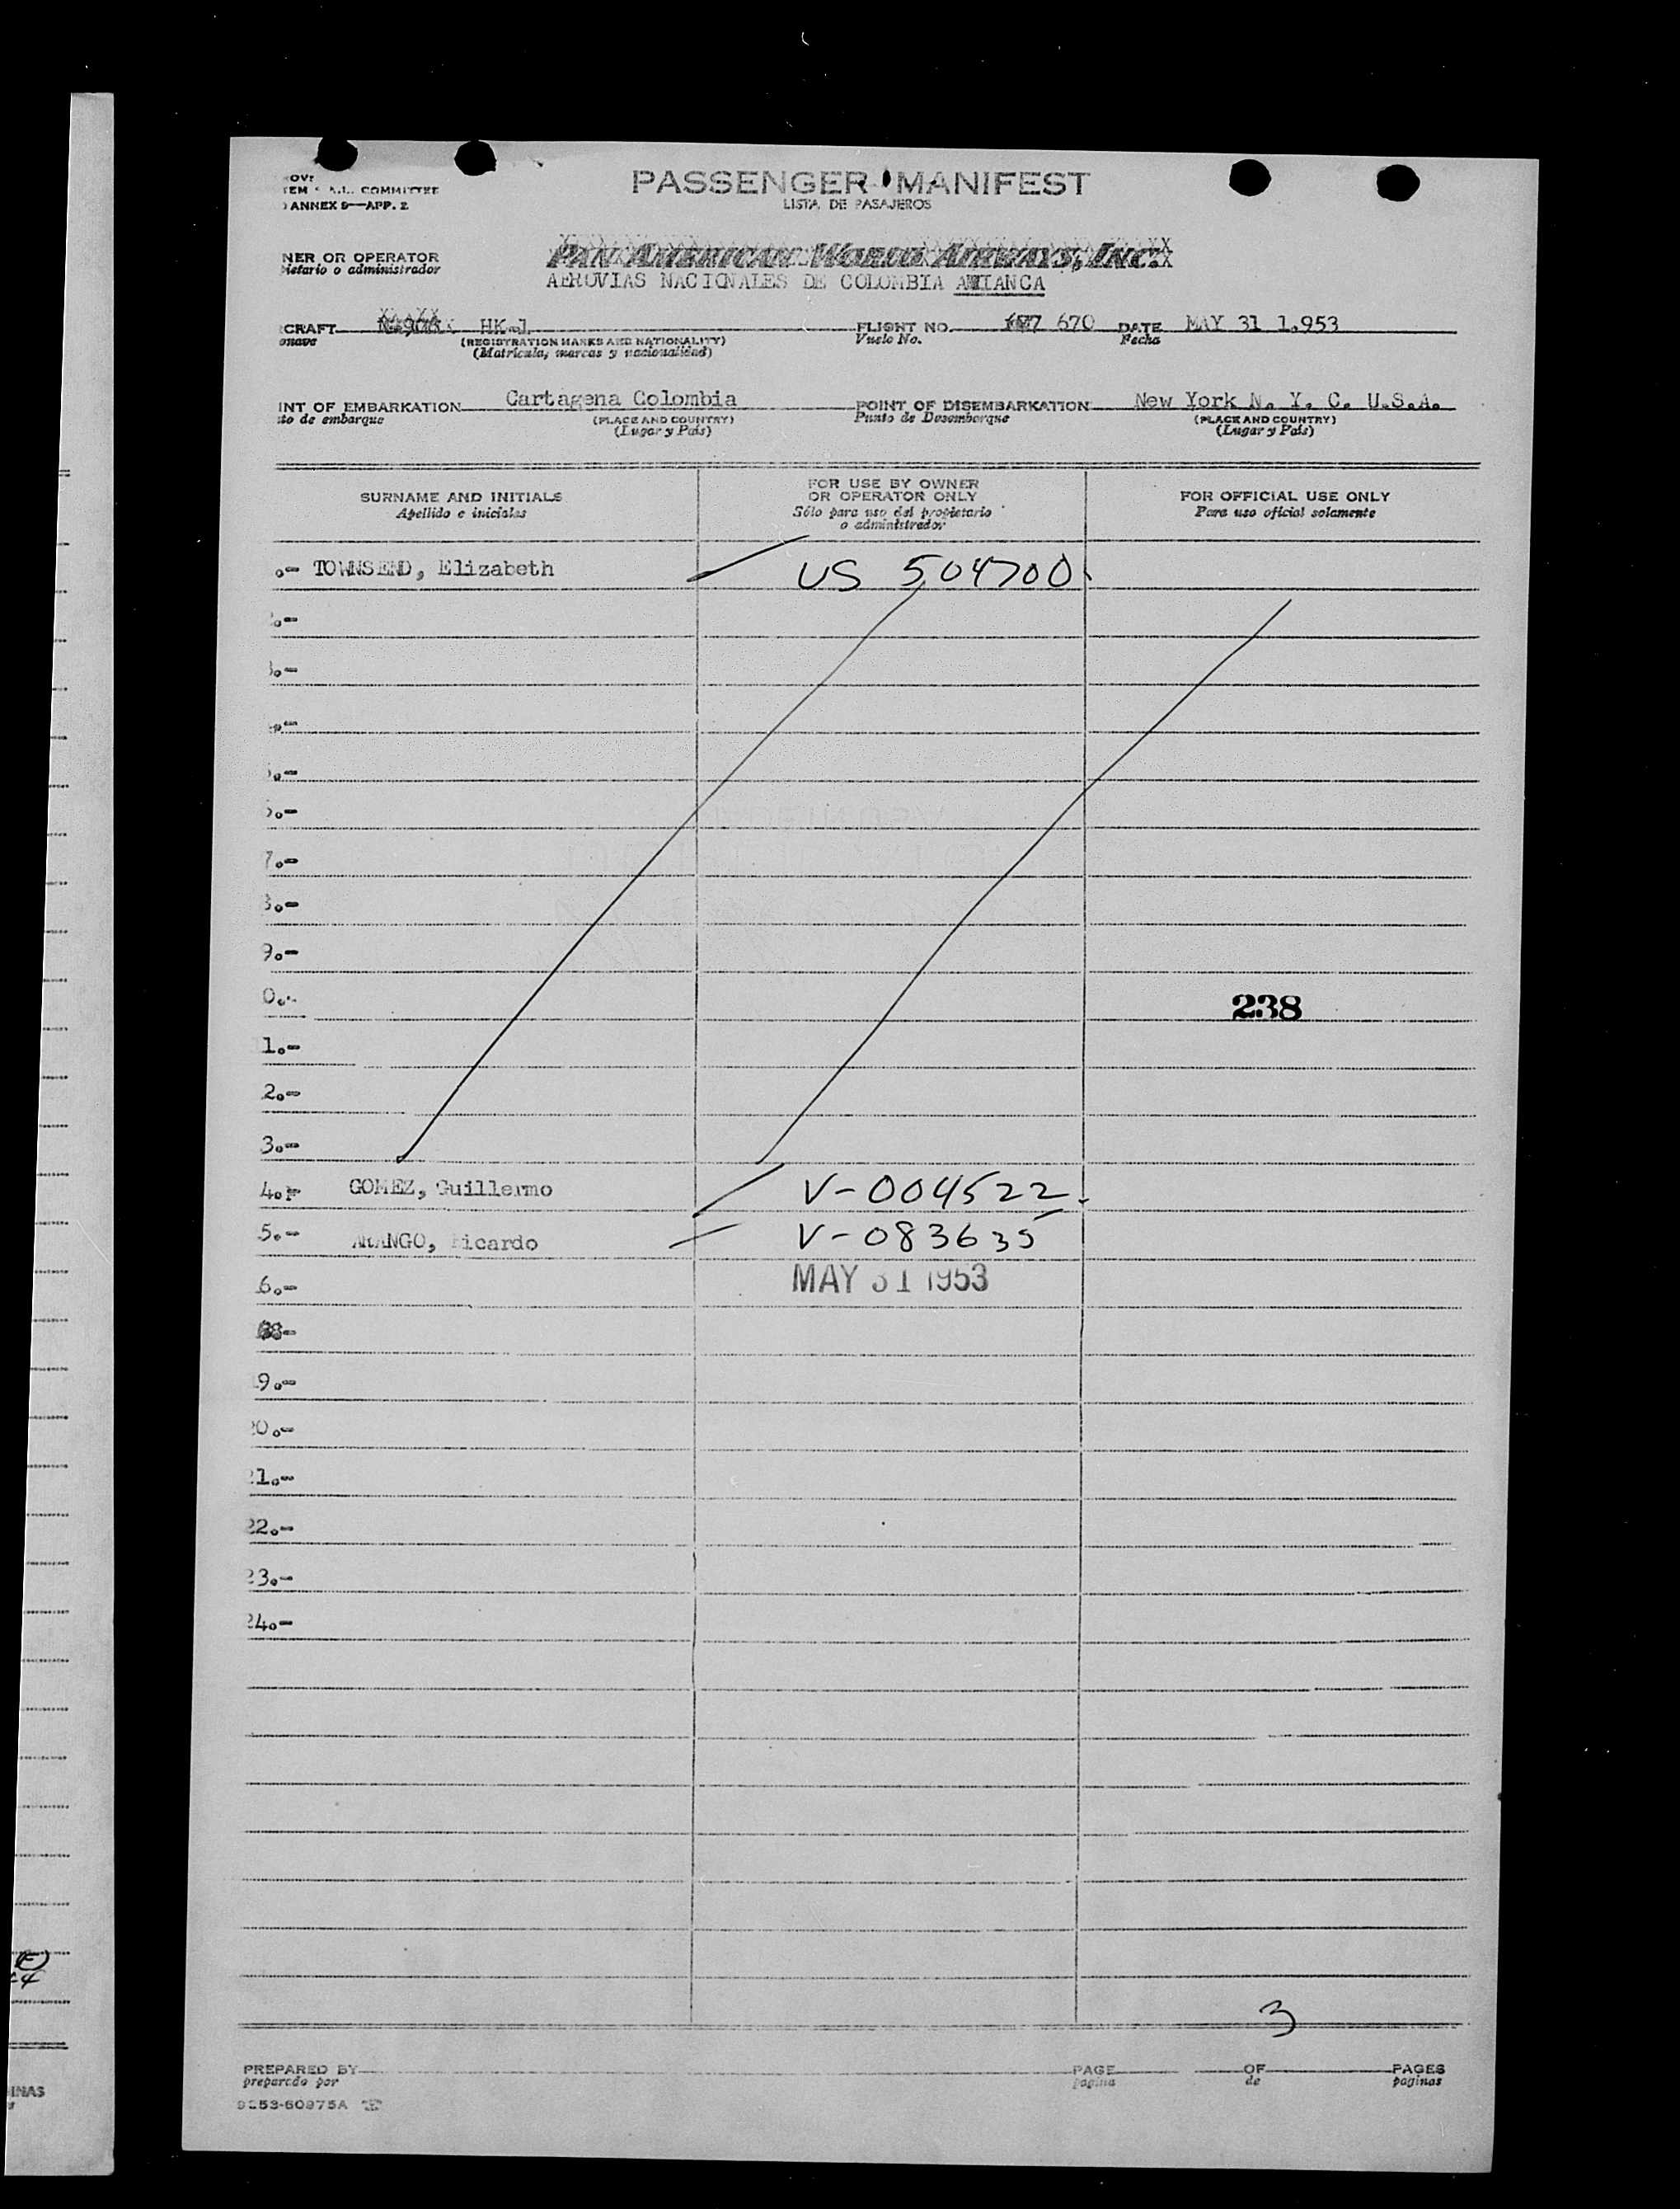 EM A.L. COMMITTEE
ANNEX 9—APP. 2
PASSENGER MANIFEST
LISTA DE PASAJEROS
NER OR OPERATOR
ietario o administrador
PAN AMERICAN WORLD AIRWAYS, INC.
AEROVIAS NACIONALES DE COLOMBIA AVIANCA
CRAFT HK-1 FLIGHT NO. 670 DATE MAY 31 1.953
onave (REGISTRATION MARKS AND NATIONALITY) Vuelo No. Fecha
(Matrícula, marcas y nacionalidad)
INT OF EMBARKATION Cartagena Colombia POINT OF DISEMBARKATION New York N. Y. C. U.S.A.
to de embarque (PLACE AND COUNTRY) Punto de Desembarque (PLACE AND COUNTRY)
(Lugar y País) (Lugar y País)
SURNAME AND INITIALS
Apellido e iniciales
FOR USE BY OWNER
OR OPERATOR ONLY
Sólo para uso del propietario
o administrador
FOR OFFICIAL USE ONLY
Para uso oficial solamente
.- TOWNSEND, Elizabeth US 504700
.-
.-
.-
.-
.-
7.-
.-
9.-
0.-
238
1.-
2.-
3.-
4.- GOMEZ, Guillermo V-004522
5.- ARANGO, Ricardo V-083635
6.- MAY 31 1953
9.-
20.-
21.-
22.-
23.-
24.-
3
PREPARED BY PAGE OF PAGES
preparado por pagina de paginas
9253-60975A
INAS